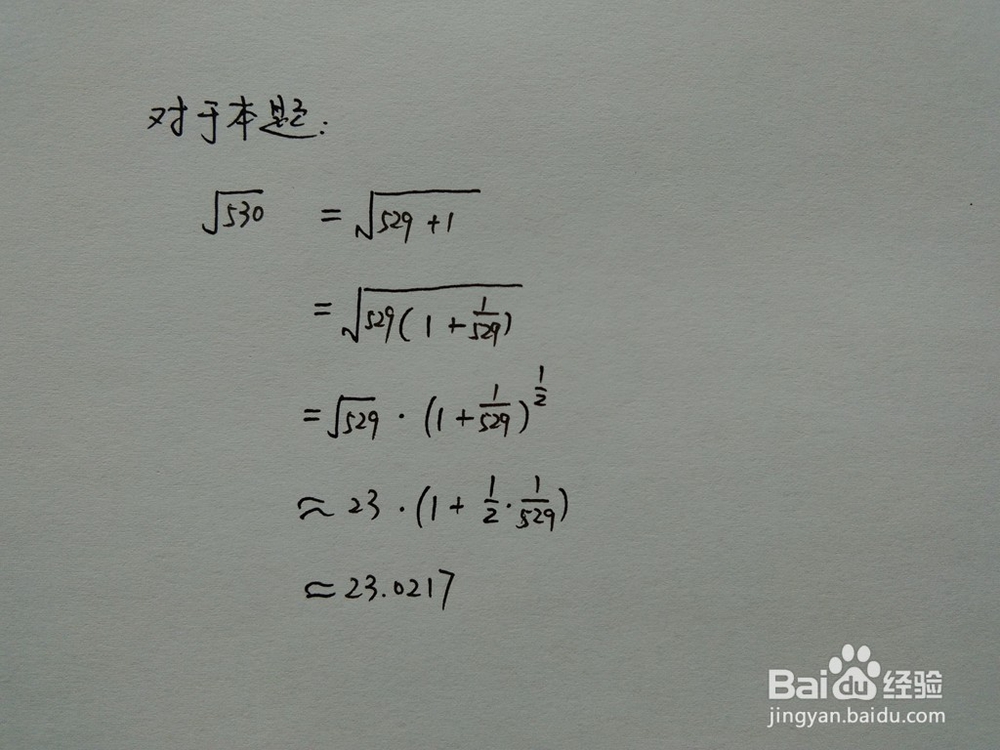 对于本题:
√530 = √(529 + 1)
= √(529(1 + 1/529))
= √529 · (1 + 1/529)^(1/2)
≈ 23 · (1 + 1/2 · 1/529)
≈ 23.0217
Baidu经验
jingyan.baidu.com